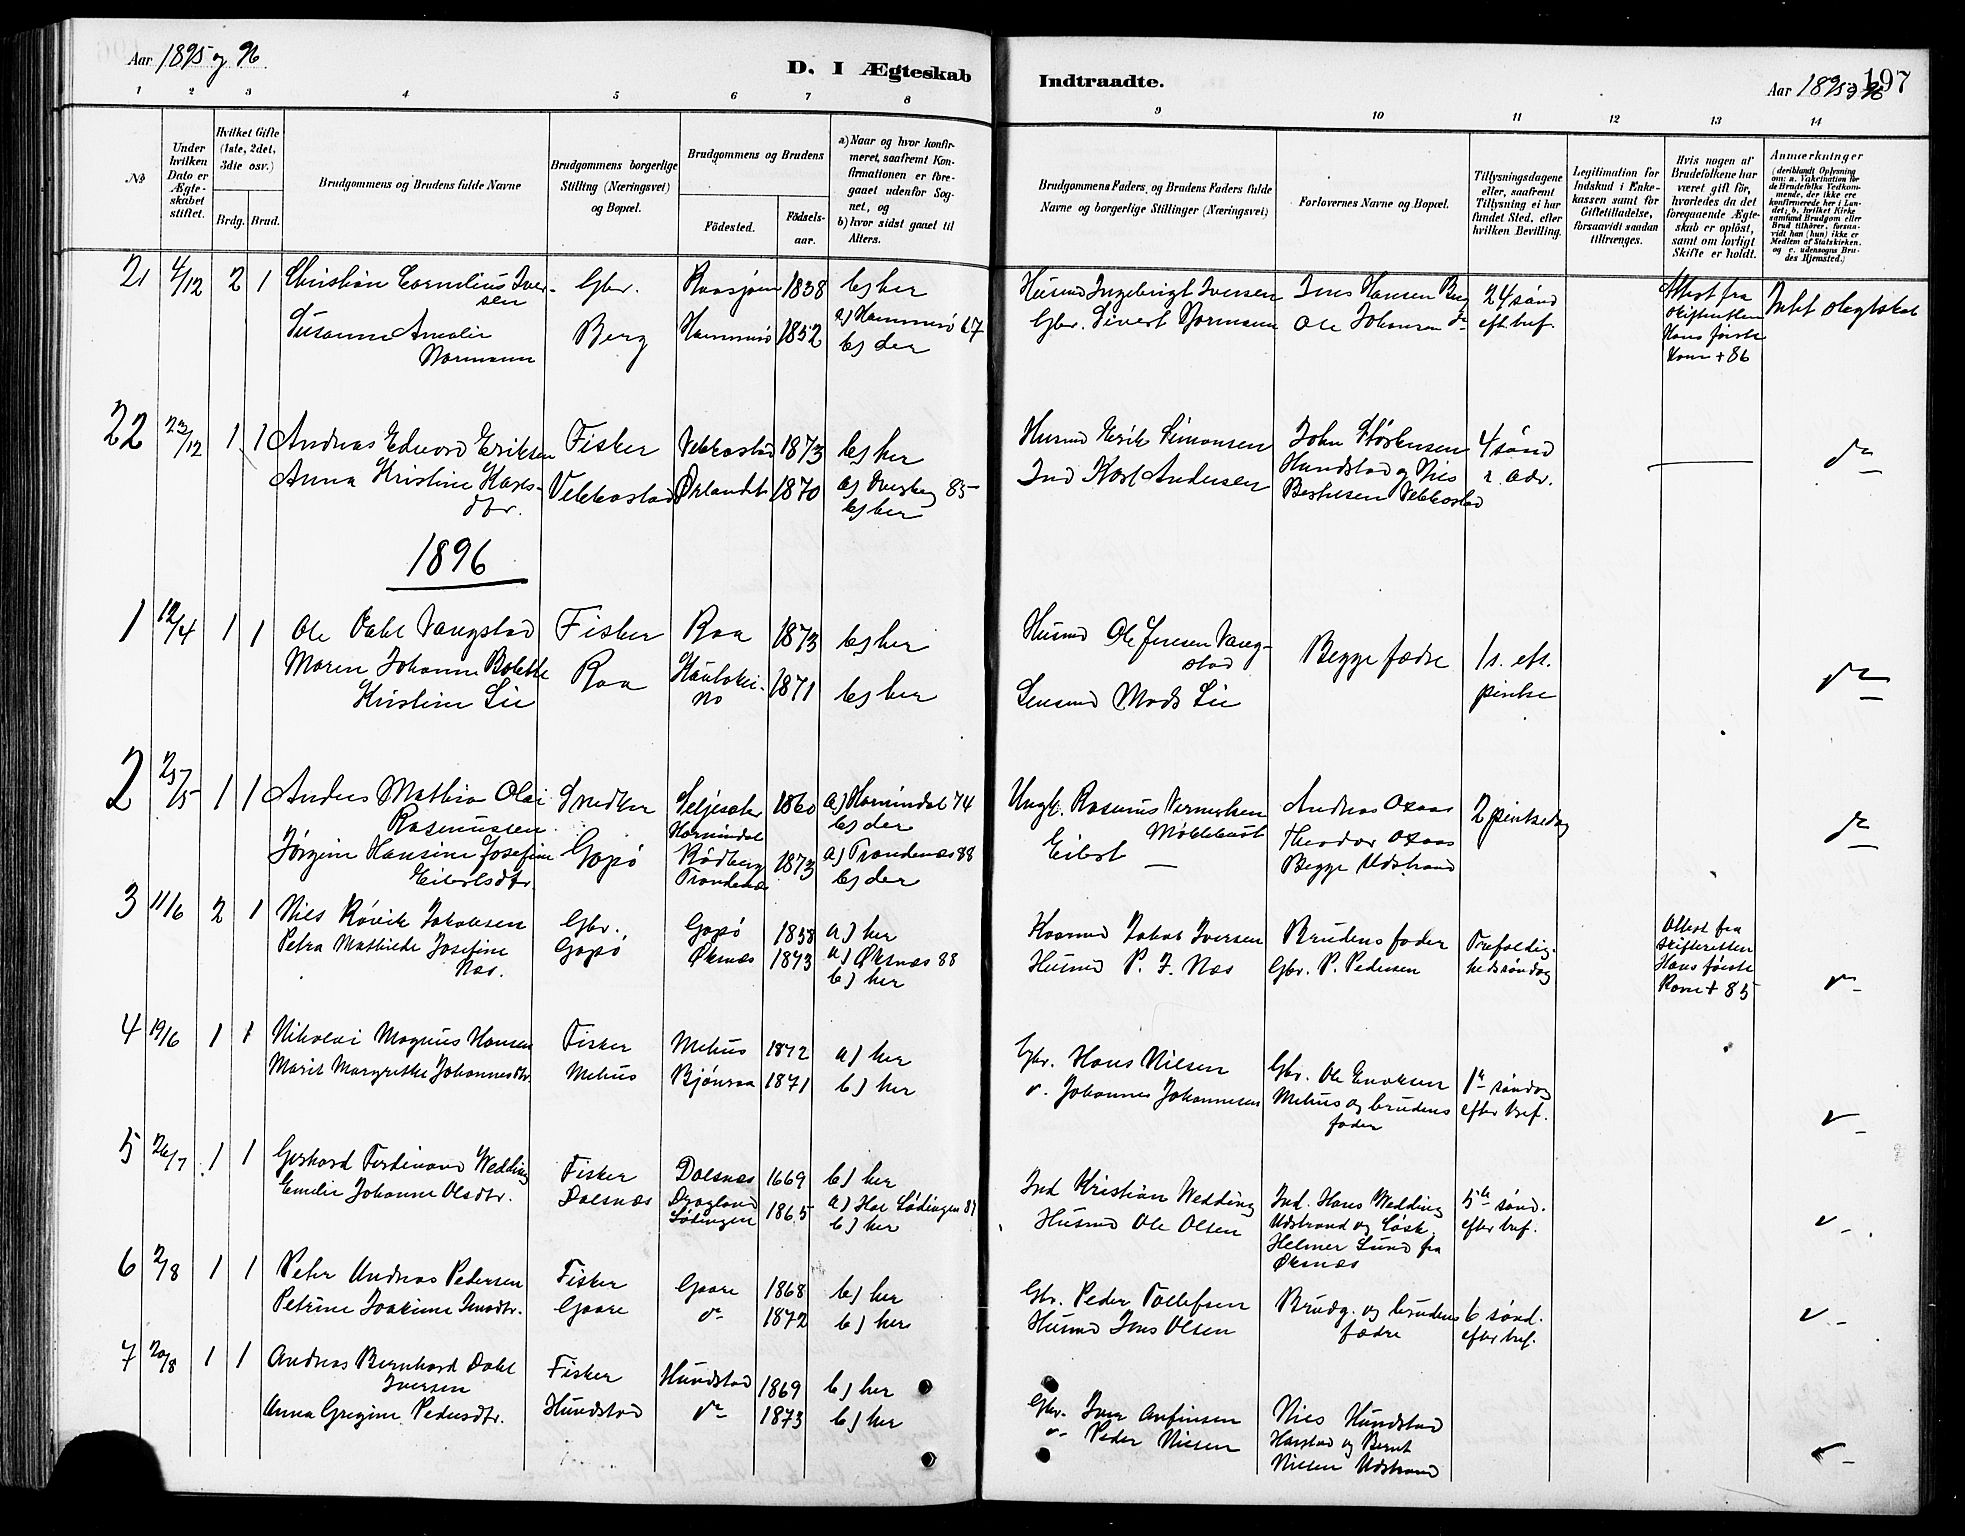 Aar 1895 og 96.
D. I Ægteskab Indtraadte.
Aar 1895 og 96
197
1 2 3 4 5 6 7 8 9 10 11 12 13 14
№
Under hvilken Dato er Ægteskabet stiftet.
Hvilket Gifte (1ste, 2det, 3die osv.)
Brdg. Brud.
Brudgommens og Brudens fulde Navne
Brudgommens borgerlige Stilling (Næringsvei) og Bopæl.
Brudgommens og Brudens
Fødested.
Fødselsaar.
a) Naar og hvor konfirmeret, saafremt Konfirmationen er foregaaet udenfor Sognet, og
b) hvor sidst gaaet til Alters.
Brudgommens Faders og Brudens Faders fulde Navne og borgerlige Stillinger (Næringsvei)
Forlovernes Navne og Bopæl.
Tillysningsdagene eller, saafremt Tillysning ei har fundet Sted, efter hvilken Bevilling.
Legitimation for Indskud i Enkekassen samt for Giftetilladelse, forsaavidt saadan tiltrænges.
Hvis nogen af Brudefolkene har været gift før, hvorledes da det foregaaende Ægteskab er opløst, samt om lovligt Skifte er holdt.
Anmærkninger (deriblandt Oplysning om: a. Vakcination for de Brudefolks Vedkommende, der ikke ere konfirmerede her i Landet; b. hvilket Kirkesamfund Brudgom eller Brud tilhører, forsaavidt han (hun) ikke er Medlem af Statskirken, og c. udensogns Brudes Hjemsted.)
21 4/12 2 1 Christian Cornelius Iversen Gbr. 1838 b) her
Husmd Ingebrigt Iversen Jens Hansen Berg 24 sønd eft. tref. Attest fra skifteretten Hans første kone + 86 Intet slegtskab
Susanne Amalie Normann Berg Hammerø 1852 a) Hammerø 67 b) der
Gbr. Sivert Normann Ole Johansen do
22 23/12 1 1 Andreas Edvard Eriksen Fisker Vebbostad 1873 b) her
Husmd Erik Simonsen John Størkensen Hundstad og Nils 4 sønd i adv. — do
Anna Kristine Karlsdtr. Vebbostad Ørlandet 1870 a) 85 b) her
Ind Karl Andersen Vebbostad
1896
1 12/4 1 1 Ole Dahl Vangstad Fisker Raa 1873 b) her
Husmd Ole Jensen Vangstad Begge fædre 1 s. eft. pintse do
Maren Johanne Bolette Kristine Lie Raa Kautokeino 1871 b) her
Lensmd Mads Lie
2 25/5 1 1 Anders Mathias Olai Rasmussen Snedker Hornindal 1860 a) Hornindal 74 b) der
Ungk. Rasmus Møklebust Andreas Oxaas 2 pintsedag do
Jørgine Hansine Josefine Eilertsdtr. Gapø Rødberg Trondenæs 1873 a) Trondenæs 88 b) der
Eilert — Theodor Oxaas Begge Udstrand
3 11/6 2 1 Nils Røvik Jakobsen Gbr. Gapø 1838 a) her
Husmd Jakob Iversen Brudens fader Trefoldighedssøndag Attest fra skifteretten Hans første Kone + 85 do
Petra Mathilde Josefine Næs. Gapø Øksnæs 1873 a) Øksnæs 88 b) her
Husmd P. J. Næs Gbr. P. Pedersen
4 19/6 1 1 Nikolai Magnus Hansen Fisker Melhus 1872 a) her
Gbr. Hans Nilsen Gbr. Ole Enoksen Melhus og brudens fader 1ste søndag efter tref.
Marit Margrethe Johannesdtr. Melhus Bjønraa 1871 b) her
Johannes Johannesen
5 26/7 1 1 Gerhard Ferdinand Wedding Fisker Dalsnæs 1869 b) her
Ind Kristian Wedding Ind. Hans Wedding Udstrand og 5te sønd. efter tref.
Emilie Johanne Olsdtr. Dalsnæs Dragland Lødingen 1865 a) Hol Lødingen 81 b) her
Husmd Ole Olsen Helmer Lund fra Øksnæs
6 2/8 1 1 Peter Andreas Pedersen Fisker Gaare 1868 b) her
Gbr. Peder Tollefsen Brudg. og brudens fædre 6 sønd. efter tref.
Petrine Joakime Jensdtr. Gaare do 1872 b) her
Husmd Jens Olsen
7 20/8 1 1 Andreas Bernhard Dahl Iversen Fisker Hundstad 1869 b) her
Gbr. Iver Arfinsen Nils Hundstad Harstad og Bernt Nilsen Udstrand
Anna Gregine Pedersdtr. Hundstad do 1873 b) her
do Peder Nilsen